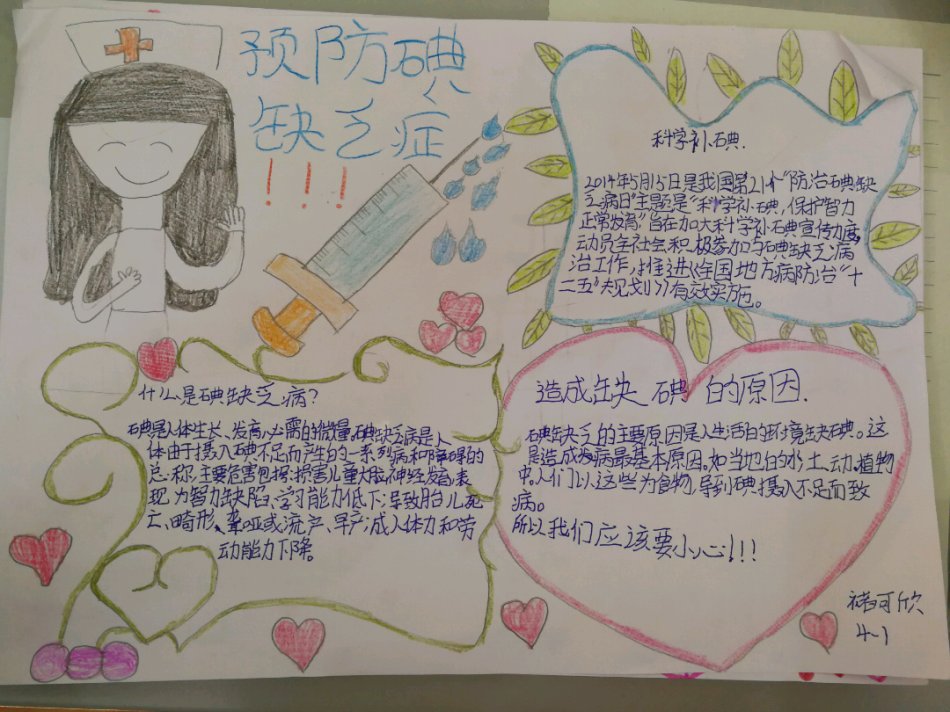 预防碘
缺乏症
!!!
科学补碘.
2014年5月15日是我国第21个“防治碘缺
乏病日”主题是“科学补碘,保护智力
正常发育”旨在加大科学补碘宣传力度,
动员全社会积极参加与碘缺乏病
治工作,推进《全国地方病防治“十
二五”规划》有效实施。
什么是碘缺乏病?
碘是人体生长、发育必需的微量,碘缺乏病是人
体由于摄入碘不足而产生的一系列病和障碍的
总称,主要危害包括:损害儿童大脑神经发育,表
现为智力缺陷、学习能力低下;导致胎儿死
亡、畸形、聋哑或流产、早产;成人体力和劳
动能力下降。
造成缺碘的原因.
碘缺乏的主要原因是人生活的环境缺碘。这
是造成发病最基本原因。如当地的水土、动、植物
中,人们以这些为食物,导到碘摄入不足而致
病。
所以我们应该要小心!!!
褚可欣
4-1